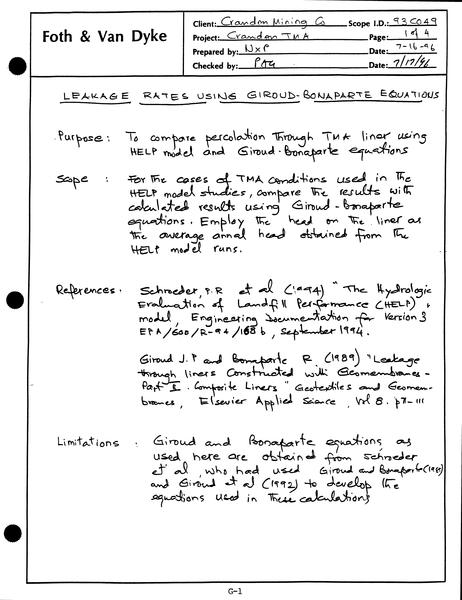 Foth & Van Dyke
Client: Crandon Mining Co Scope I.D.: 93C049
Project: Crandon TMA Page: 1 of 4
Prepared by: NXP Date: 7-16-96
Checked by: PAG Date: 7/17/96
LEAKAGE RATES USING GIROUD-BONAPARTE EQUATIONS
Purpose: To compare percolation through TMA liner using
HELP model and Giroud-Bonaparte equations
Scope : For the cases of TMA conditions used in the
HELP model studies, compare the results with
calculated results using Giroud-Bonaparte
equations. Employ the head on the liner as
the average annal head obtained from the
HELP model runs.
References: Schroeder, P.R et al (1994) "The Hydrologic
Evaluation of Landfill Performance (HELP)
model, Engineering Documentation for Version 3
EPA/600/R-94/168b, September 1994.
Giroud J.P and Bonaparte R. (1989) "Leakage
through liners Constructed with Geomembranes-
Part II. Composite Liners" Geotextiles and Geomem-
branes, Elsevier Applied Science, Vol 8. p71-111
Limitations : Giroud and Bonaparte equations, as
used here are obtained from Schroeder
et al, who had used Giroud and Bonaparte (1989)
and Giroud et al (1992) to develop the
equations used in these calculations
G-1